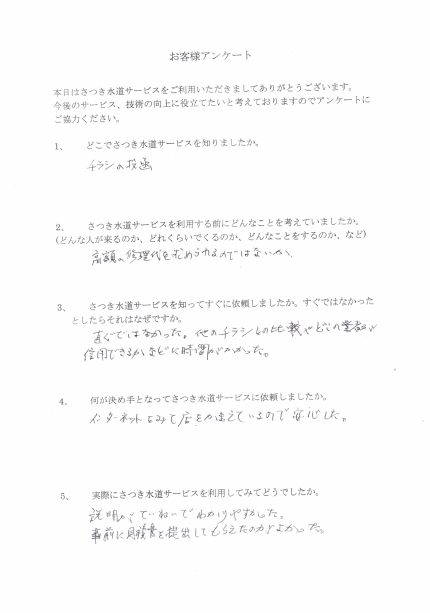 お客様アンケート
本日はさつき水道サービスをご利用いただきましてありがとうございます。
今後のサービス、技術の向上に役立てたいと考えておりますのでアンケートに
ご協力ください。
1、 どこでさつき水道サービスを知りましたか。
チラシの投函
2、 さつき水道サービスを利用する前にどんなことを考えていましたか。
(どんな人が来るのか、どれくらいでくるのか、どんなことをするのか、など)
高額の修理代を求められるのではないか、
3、 さつき水道サービスを知ってすぐに依頼しましたか。すぐではなかった
としたらそれはなぜですか。
直ぐではなかった。他のチラシとの比較やどこの業者が
信用できるかなどに時間がかかった。
4、 何が決め手となってさつき水道サービスに依頼しましたか。
インターネットをみて店をかまえているので安心した。
5、 実際にさつき水道サービスを利用してみてどうでしたか。
説明がていねいでわかりやすかった。
事前に見積書を提出してもらえたのがよかった。